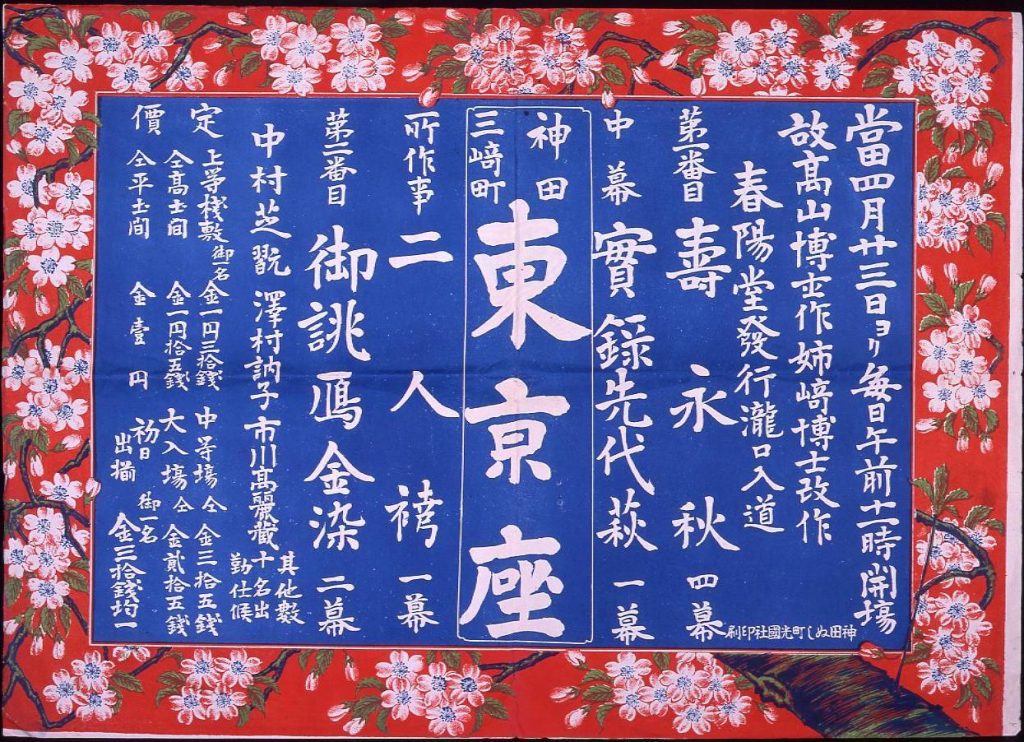 當四月廿三日ヨリ毎日午前十一時開塲
故髙山博士作姉﨑博士改作
春陽堂發行瀧口入道
第一番目 壽永秋 四幕
中幕 實錄先代萩 一幕
神田
三﨑町
東京座
所作事 二人袴 一幕
第二番目 御誂鴈金染 二幕
中村芝翫 澤村訥子 市川髙麗藏 其他數十名出勤仕候
定價
上等棧敷御一名 金一円三拾錢
仝髙土間 金一円拾五錢
仝平土間 金壹円
中等塲仝 金三拾五錢
大入塲仝 金貳拾五錢
初日出揃 御一名 金三拾錢均一
神田ぬし町光國社印刷